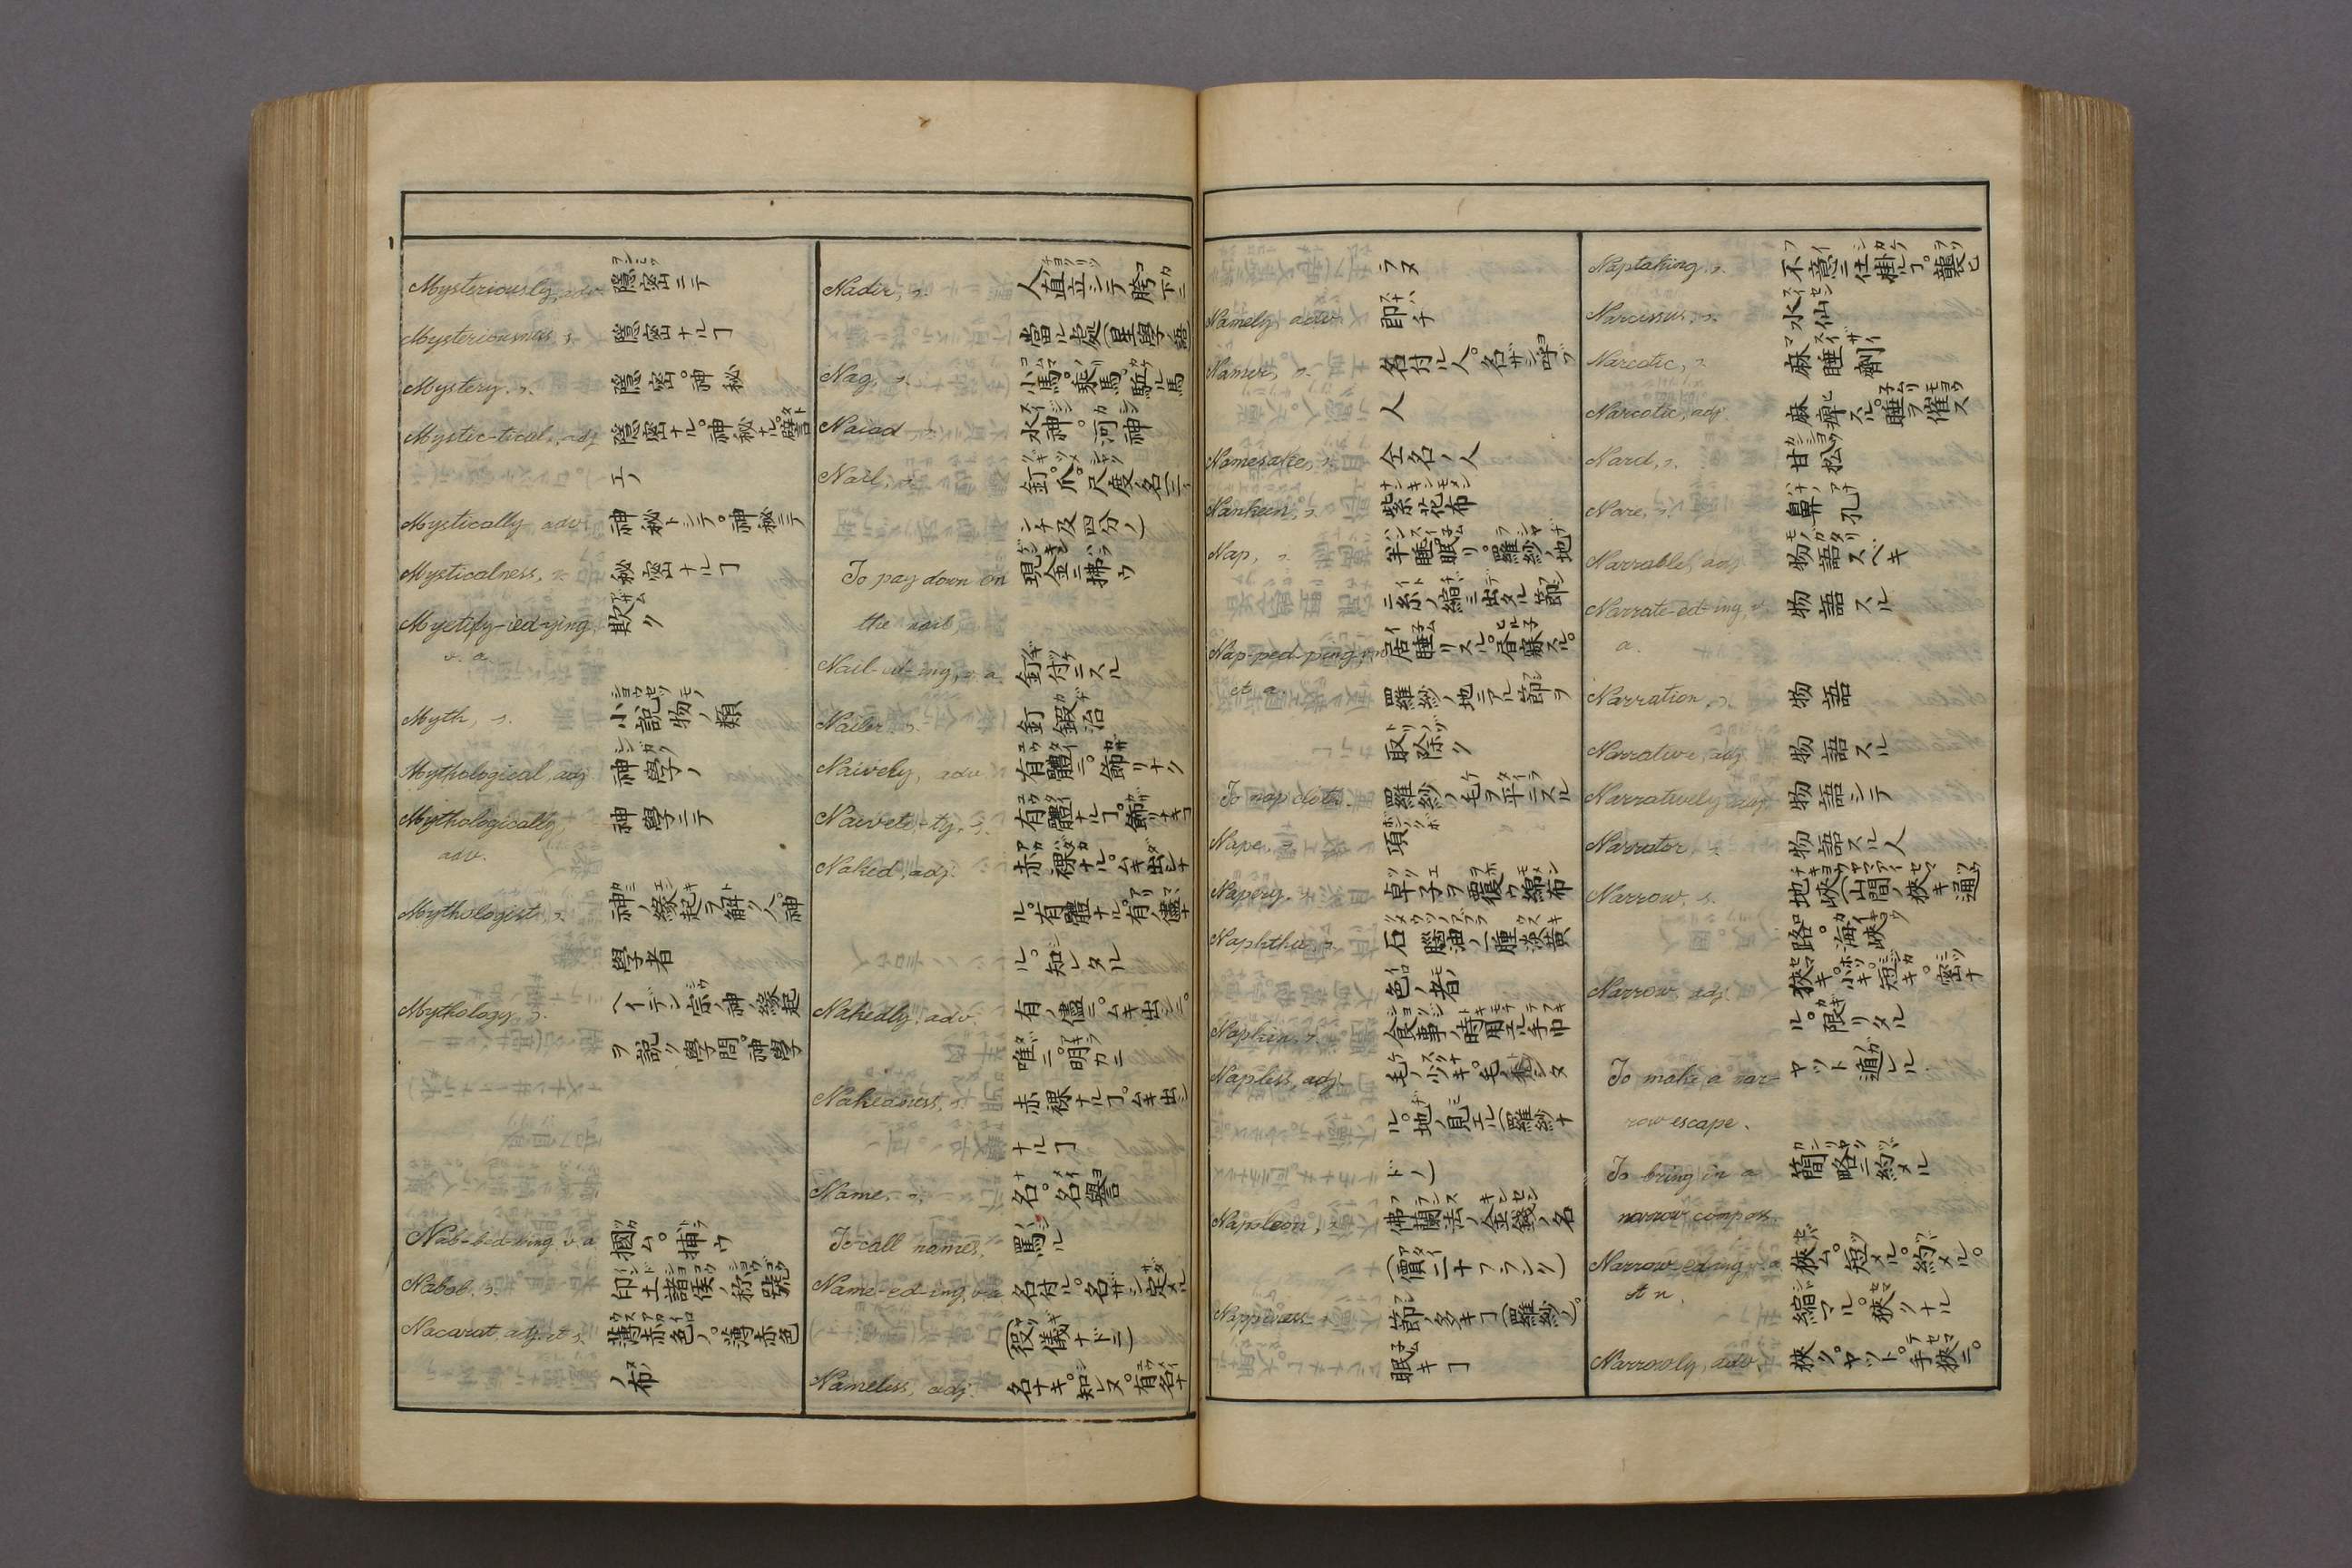 Mysteriously, adv. 隱密ニテ
Mysteriousness, s. 隱密ナルヿ
Mystery, s. 隱密。神秘
Mystic-tical, adj. 隱密ナル。神秘ナル。譬
エノ
Mystically, adv. 神秘トシテ。神秘ニテ
Mysticalness, s. 秘密ナルヿ
Mystify-ied-ying, 欺ク
v. a.
Myth, s. 小説物ノ類
Mythological, adj. 神學ノ
Mythologically, 神學ニテ
adv.
Mythologist, s. 神ノ縁起ヲ解ク人。神
學者
Mythology, s. ヘイデン宗ノ神ノ縁起
ヲ説ク學問。神學
Nab-bed-bing, v. a. 摑ム。捕ウ
Nabob, s. 印土諸侯ノ称號
Nacarat, adj. et s. 薄赤色ノ。薄赤色
ノ布
Nadir, s. 人直立シテ胯下ニ
當ル處(星學ノ語)
Nag, s. 小馬。乘馬。駈ル馬
Naiad, s. 水神。河神
Nail, s. 釘。爪。尺度ノ名(二イ
ンチ及四分ノ一)
To pay down on 現金ニ拂ウ
the nail,
Nail-ed-ing, v. a. 釘付ニスル
Nailer, s. 釘鍛治
Naively, adv. 有體ニ。飾リナク
Naivete-ty, s. 有體ナルヿ。飾リナキヿ
Naked, adj. 赤裸ナル。ムキ出シナ
ル。有體ナル。有ノ儘ナ
ル。知レタル
Nakedly, adv. 有ノ儘ニ。ムキ出シニ。
唯ニ。明カニ
Nakedness, s. 赤裸ナルヿ。ムキ出シ
ナルヿ
Name, s. 名。名譽
To call names, 罵ル
Name-ed-ing, v. a. 名付ル。名ザシ定メル
(役儀ナドニ)
Nameless, adj. 名ナキ。知レヌ。有名ナ
ラヌ
Namely, adv. 即チ
Namer, s. 名付ル人。名ザシ呼ブ
人
Namesake, s. 仝名ノ人
Nankeen, s. 紫花布
Nap, s. 半睡眠リ。羅紗ノ地
ニ糸ノ縮ミ出タル節
Nap-ped-ping, v. n. 居睡リスル。昼寐スル。
et a. 羅紗ノ地ニアル節ヲ
取除ク
To nap cloth. 羅紗ノ毛ヲ平ニスル
Nape, s. 項
Napery, s. 卓子ヲ覆ウ綿布
Naphtha, s. 石腦油ノ一種淡黄
色ノ者
Napkin, s. 食事ノ時用エル手巾
Napless, adj. 毛ノ少キ。毛ノ
ル。地ノ見エル(羅紗ナ
ドノ)
Napoleon, s. 佛蘭西ノ金錢ノ名
(價二十フランク)
Nappiness, s. 節ノ多キヿ(羅紗ノ)。
眠キヿ
Naptaking, s. 不意ニ仕掛ルヿ。襲ヒ
Narcissus, s. 水仙
Narcotic, s. 麻睡劑
Narcotic, adj. 麻痺スル。睡ヲ催ス
Nard, s. 甘松
Nare, s. 鼻孔
Narrable, adj. 物語スベキ
Narrate-ed-ing, v. 物語スル
a.
Narration, s. 物語
Narrative, adj. 物語スル
Narratively, adv. 物語シテ
Narrator, s. 物語スル人
Narrow, s. 地峽(山間ノ狹キ通
路。海峽
Narrow, adj. 狹キ。小キ。短キ。密ナ
ル。限リタル
To make a nar- ヤット遁レル
row escape.
To bring in a 簡略ニ約メル
narrow compass.
Narrow-ed-ing, v. a. 狹ム。短メル。約メル。
et n. 縮マル。狹クナル
Narrowly, adv. 狹ク。ヤット。手狹ニ。